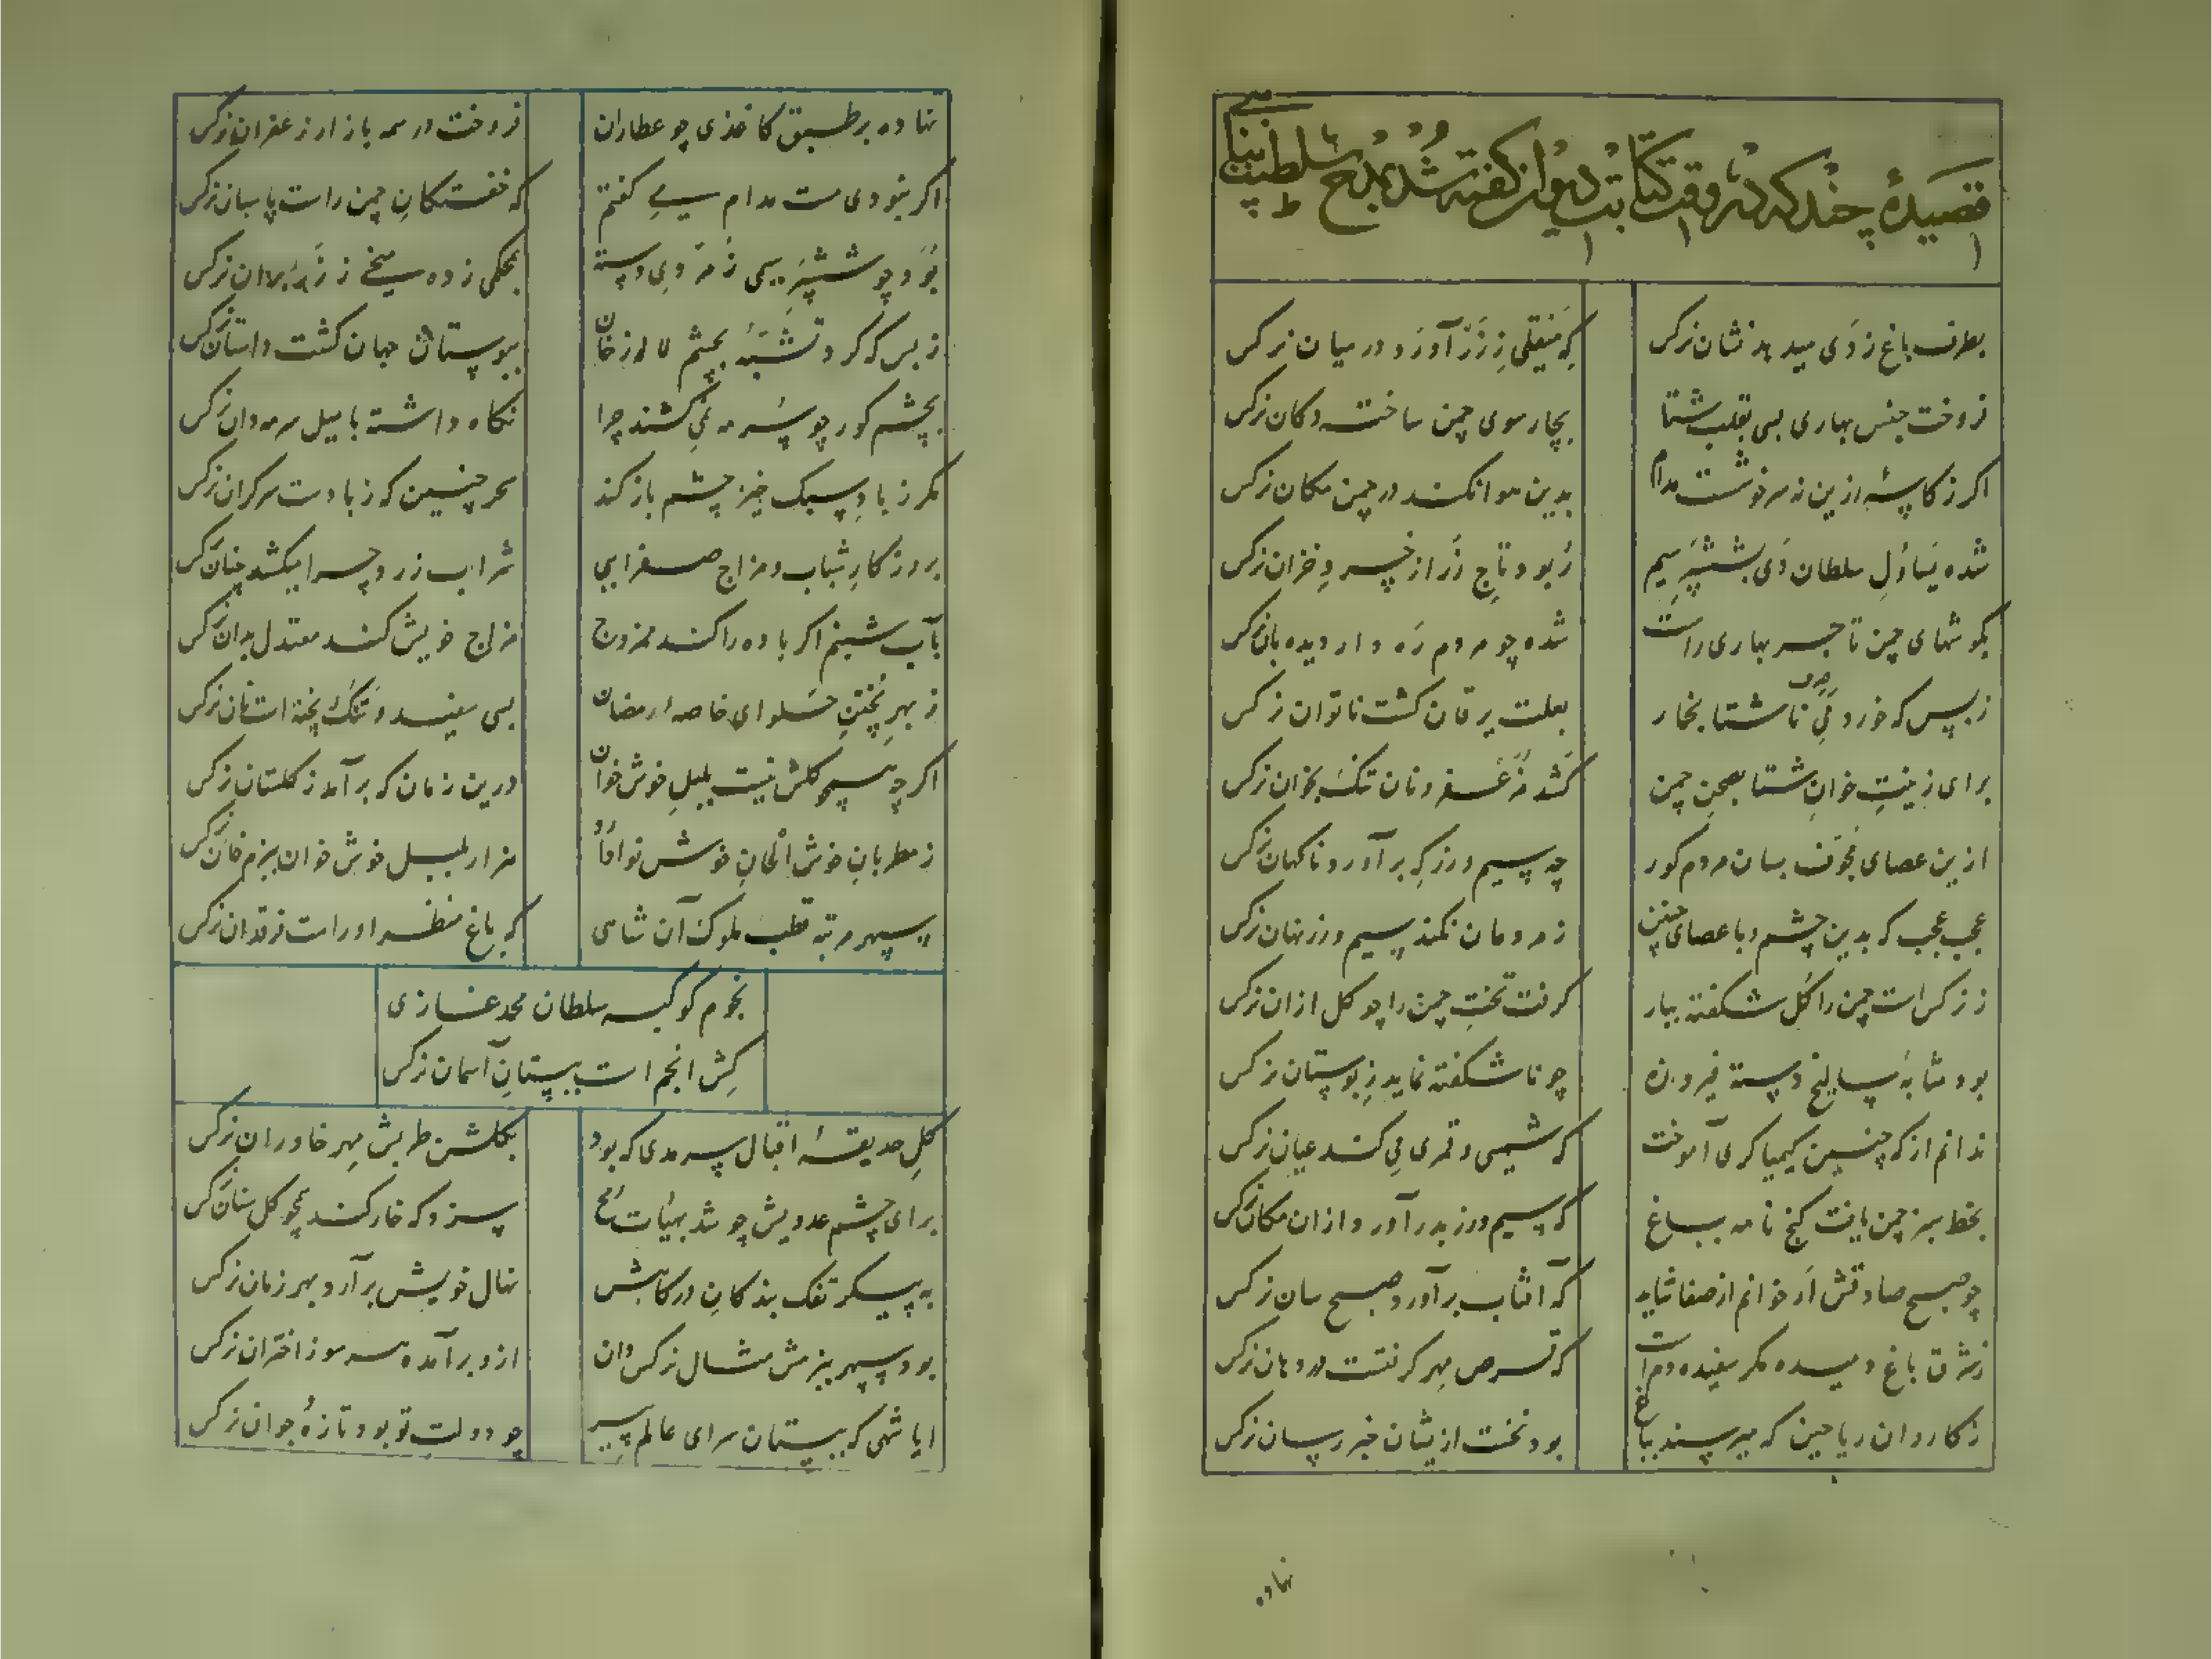 قصیدهٔ چند که در وقت کتابت دیوان گفته شد بمدح سلطین
بطرف باغ ز دی میدهد نشان نرکس
که منقلی ز زر آورد در میان نرکس
فروخت جنس بهاری بسی بقلب شتا
بچار سوی چمن ساخته دکان نرکس
اکر ز کاسهٔ زرین نه سرخوشست مدام
بدین هوا نکند در چمن مکان نرکس
شده یساول سلطان دی بششپر سیم
ربود تاج زر از خسرو خزان نرکس
بکوشهای چمن تا جسر بهاری راست
شده چو مردم ره دار دیده بان نرکس
ز بس که خورد می ناشتا بخار
بعلت یرقان کشت ناتوان نرکس
برای زینت خوان شتا بصحن چمن
کشد مزعفر و نان تنک بخوان نرکس
ازین عصای مجوف بسان مردم کور
چه سیم و زر که برآورد ناکهان نرکس
عجب عجب که بدین چشم و با عصای چنین
ز مردمان نکند سیم و زر نهان نرکس
ز نرکس است چمن را کل شکفته ببار
کرفت تخت چمن را چو کل ازان نرکس
بود مشابه سالیخ دسته فیروزه
چو ناشکفته نماید ز بوستان نرکس
ندانم از که چنین کیمیا کری آموخت
که شمسی و قمری می کند عیان نرکس
بخط سبز چمن یافت کنج نامه بباغ
که سیم و زر بدر آورد ازان مکان نرکس
چو صبح صادقش ار خوانم از صفا شاید
که آفتاب برآورد صبح سان نرکس
ز شرق باغ دمیده مکر سفیده دم است
که قرص مهر کرفتست در دهان نرکس
ز کاروان ریاحین که میرسند بباغ
بود نخست ازیشان خبر رسان نرکس
نهاده
نهاده بر طبق کاغذی چو عطاران
فروخت در سر بازار زعفران نرکس
اکر نبودی مست مدام سی کفتم
که خفتکان چمن راست پاسبان نرکس
بود چو ششپر سیمی زمردی دسته
بمحکمی زده میخی ز زر بران نرکس
ز بس که کرد تشبه بچشم لاله رخان
ببوستان جهان کشت داستان نرکس
بچشم کور چو سرمه نمی کشند چرا
نکاه داشته با میل سرمه دان نرکس
مکر ز باد سبک خیز چشم باز کند
سحر چنین که ز بادست سرکران نرکس
بروزکار شباب و مزاج صفرایی
شراب زرد چرا میکشد چنان نرکس
بآب شبنم اکر باده را کند ممزوج
مزاج خویش کند معتدل بدان نرکس
ز بهر پختن حلوای خاصه رمضان
بسی سفید و تنک پخته است نان نرکس
اکر چه موسم کلش نیست بلبل خوش خوان
درین زمان که برآمد ز کلستان نرکس
ز مطربان خوش الحان خوش نوا
هزار بلبل خوش خوان ببزم خان نرکس
سپهر مرتبه قطب ملوک آن شاهی
که باغ منظر او راست فرقدان نرکس
نجوم کوکبه سلطان محمد غازی
کش انجم است ببستان آسمان نرکس
کل حدیقهٔ اقبال سرمدی که بود
بکلشن طربش مهر خاوران نرکس
برای چشم عدویش چو شد بهیأت رمح
سزد که خار کند همچو کل سنان نرکس
به پیکر تفک بندکان درکاهش
نهال خویش برآرد بهر زمان نرکس
بود سپهر ببزمش مثال نرکس دان
ازو برآمده هر سو ز اختران نرکس
ایا شهی که ببستان سرای عالم پیر
چو دولت تو بود تازه و جوان نرکس